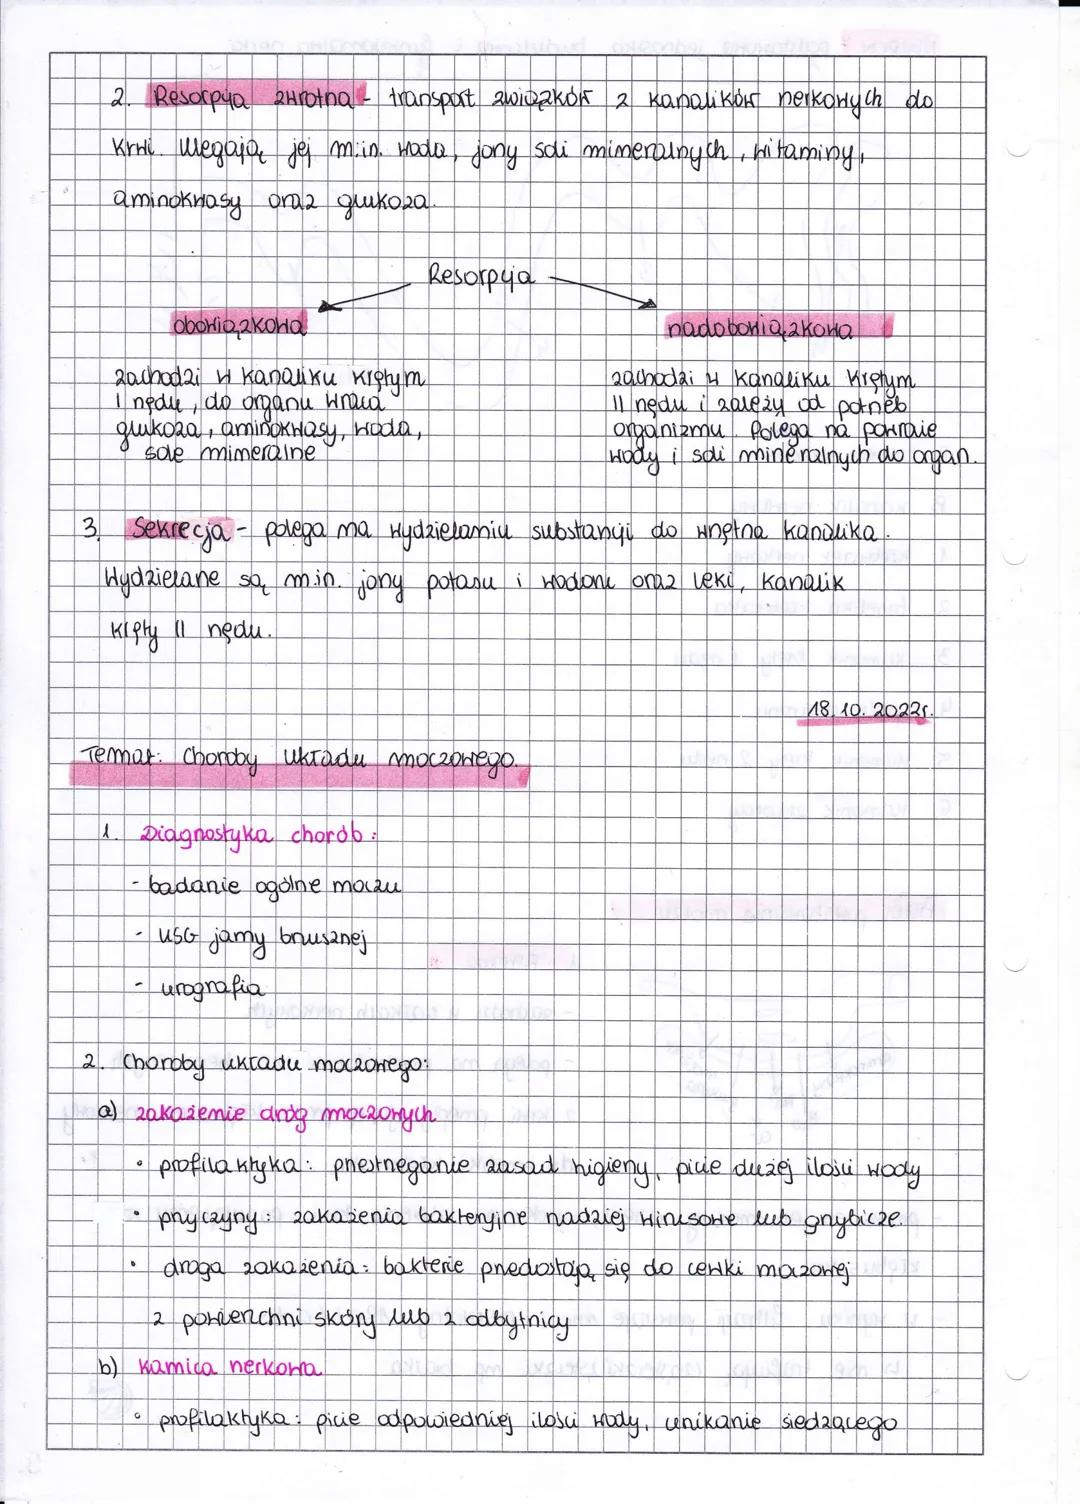 2. Resorpcja zwrotna - transport związków z kanalików nerkowych do
krwi. Ulegają jej m.in. woda, jony soli mineralnych, witaminy,
aminokwasy oraz glukoza.
Resorpcja
obowiązkowa
nadobowiązkowa
zachodzi w kanaliku krętym
I rzędu, do organu wraca
glukoza, aminokwasy, woda,
sole mineralne
zachodzi w kanaliku krętym
II rzędu i zależy od potrzeb
organizmu. Polega na powrocie
wody i soli mineralnych do organ.
3. Sekrecja - polega na wydzielaniu substancji do wnętrza kanalika.
Wydzielane są m.in. jony potasu i wodoru oraz leki, kanalik
kręty II rzędu.
18.10.2022r.
Temat: Choroby układu moczowego.
1. Diagnostyka chorób:
- badanie ogólne moczu
- USG jamy brzusznej
- urografia
2. Choroby układu moczowego:
a) zakażenie dróg moczowych
• profilaktyka: przestrzeganie zasad higieny, picie dużej ilości wody
• przyczyny: zakażenia bakteryjne rzadziej wirusowe lub grzybicze.
• droga zakażenia: bakterie przedostają się do cewki moczowej
z powierzchni skóry lub z odbytnicy
b) kamica nerkowa
• profilaktyka: picie odpowiedniej ilości wody, unikanie siedzącego